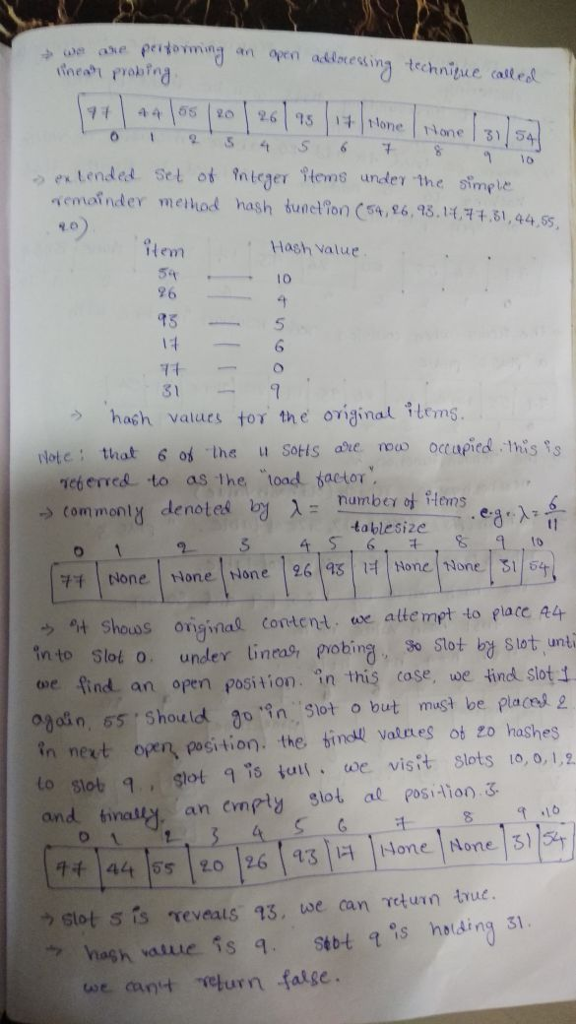 → we are performing an open addressing technique called
linear probing.
77 44 55 20 26 93 17 None None 31 54
0 1 2 3 4 5 6 7 8 9 10
→ extended set of integer items under the simple
remainder method hash function (54, 26, 93, 17, 77, 31, 44, 55,
20)
item Hash value.
54 — 10
26 — 4
93 — 5
17 — 6
77 — 0
31 — 9
→ hash values for the original items.
Note: that 6 of the 11 sotts are now occupied. this is
referred to as the "load factor".
→ commonly denoted by λ = number of items / tablesize . e.g. λ = 6/11
0 1 2 3 4 5 6 7 8 9 10
77 None None None 26 93 17 None None 31 54
→ it shows original content. we attempt to place 44
into slot 0. under linear probing, so slot by slot unti
we find an open position. in this case, we find slot 1
again, 55 should go in slot 0 but must be placed 2
in next open position. the final values of 20 hashes
to slot 9. slot 9 is full. we visit slots 10, 0, 1, 2
and finally, an empty slot at position 3.
0 1 2 3 4 5 6 7 8 9 10
77 44 55 20 26 93 17 None None 31 54
→ slot 5 is reveals 93, we can return true.
→ hash value is 9. slot 9 is holding 31.
we can't return false.